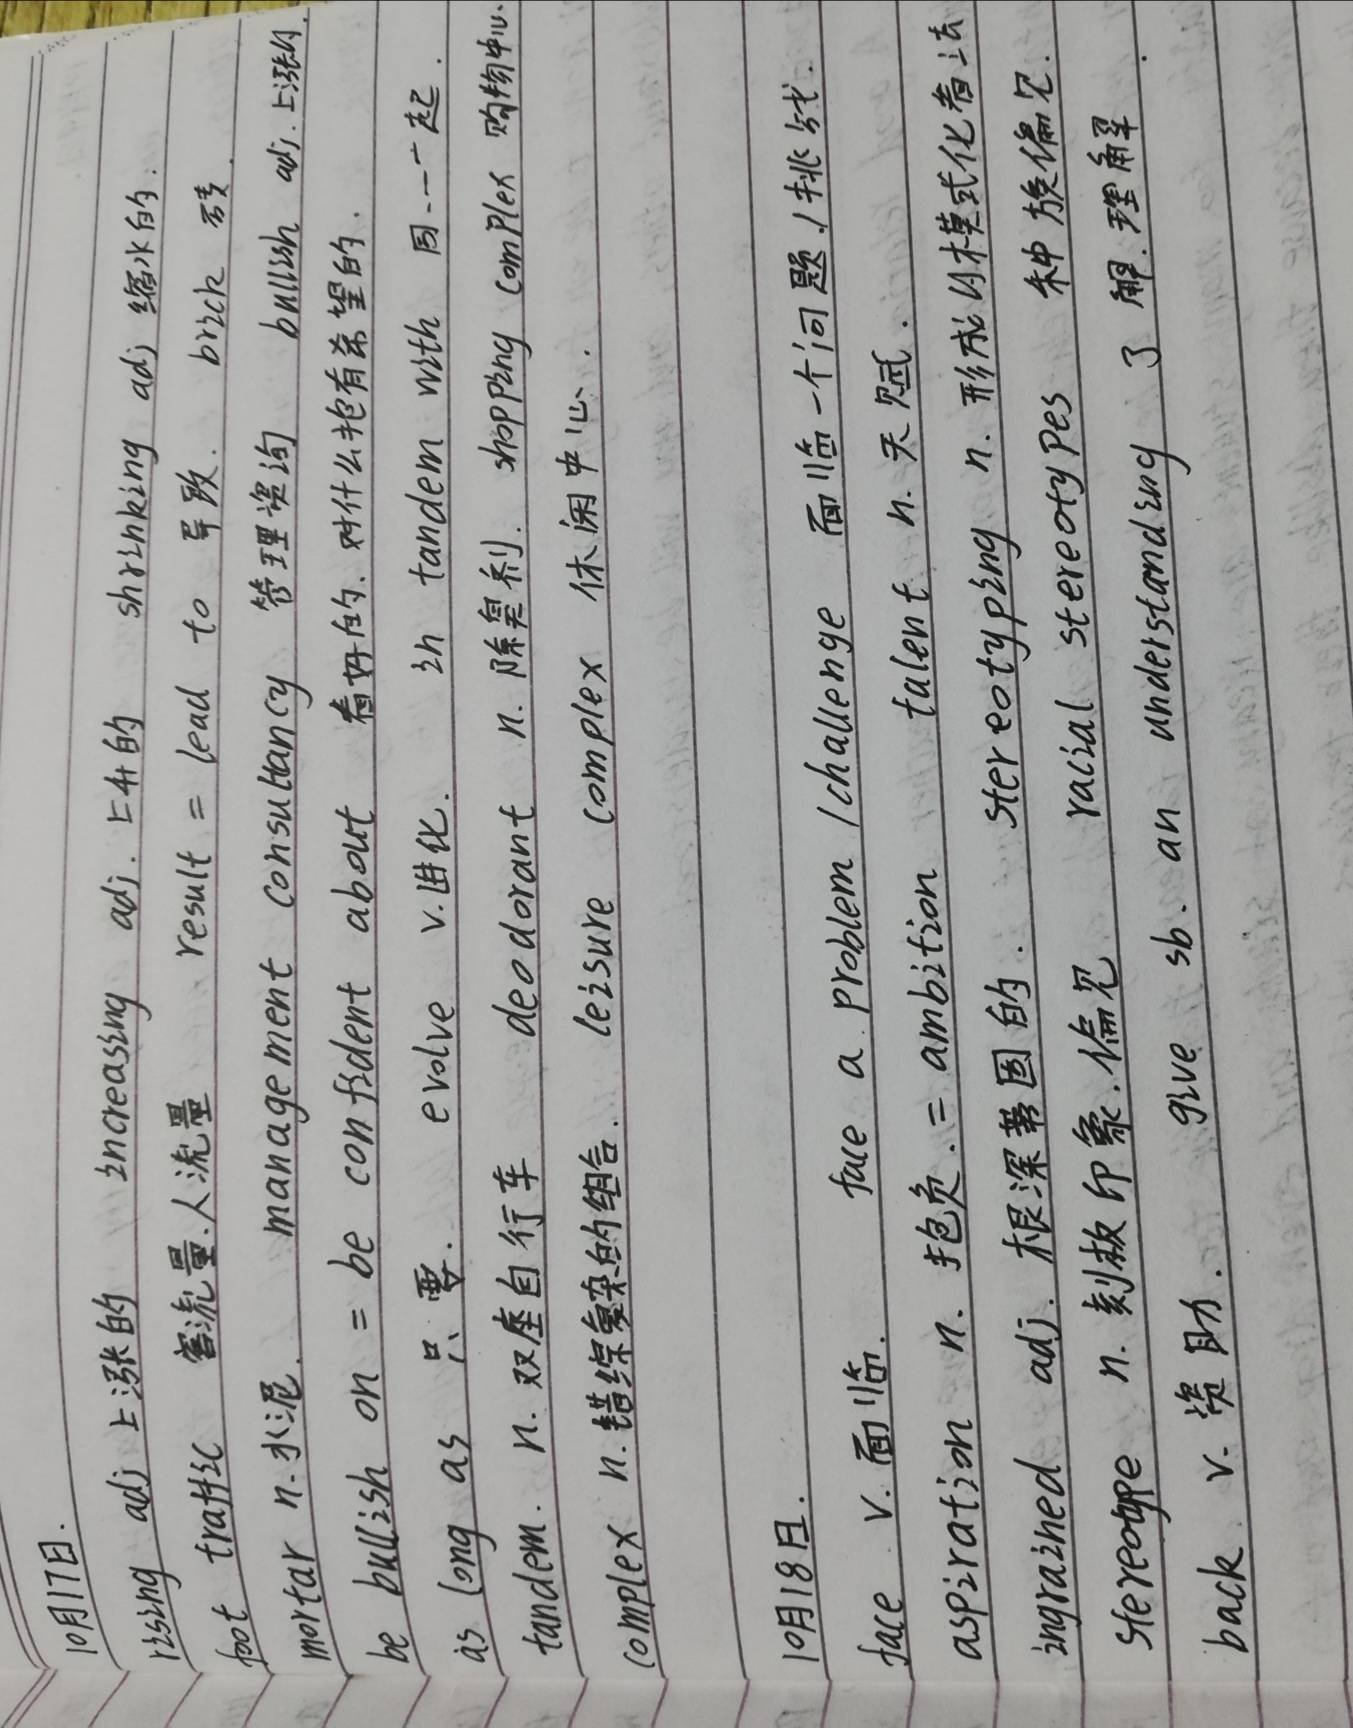 10月17日.
rising adj 上涨的 increasing adj. 上升的 shrinking adj 缩水的.
foot traffic 客流量.人流量 result = lead to 导致. brick 砖.
mortar n.水泥. management consultancy 管理资询 bullish adj. 上涨的.
be bullish on = be confident about 看好的.对什么抱有希望的.
as long as 只要. evolve v.进化. in tandem with 同…一起.
tandem. n. 双座自行车 deodorant n.除臭剂. shopping complex 购物中心.
complex n.错综复杂的组合. leisure complex 休闲中心.
10月18日.
face v.面临. face a problem /challenge 面临一个问题./挑战.
aspiration n. 抱负.= ambition talent n.天赋.
ingrained adj. 根深蒂固的. stereotyping n. 形成以木模式化看法
stereotype n. 刻板印象.偏见 racial stereotypes 种族偏见.
back v.资助. give sb. an understanding 了解.理解.